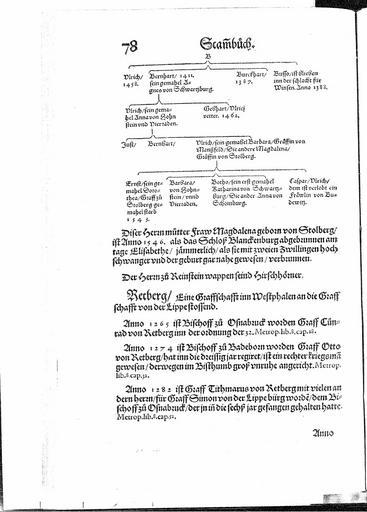 78 Stam̃bůch.
B
Ulrich/ 1458.
Bernhart/ 1411. sein gemahel Agnes von Schwartzburg.
Burckhart/ 1387.
Busso/ ist blieben inn der schlacht für Winsen. Anno 1388.
Ulrich/ sein gemahel Anna von Hohnstein vnd Vierraden.
Gebhart/ Vlrich vetter. 1462.
Just/
Bernhart/
Vlrich/ sein gemahel Barbara/ Gräffin von Manßfeld/ Die ander Magdalena/ Gräffin von Stolberg.
Ernst/ sein gemahel Dorothea/ Graff zu Stolberg gemahel starb 1545.
Barbara/ von Hohnstein/ vnnd Vierraden.
Botho/ sein erst gemahel Katharina von Schwartzburg/ Die ander Anna von Schomburg.
Caspar/ Vlrich/ dem ist verlobt ein Fröwlin von Budewitz.
Diser Herrn můtter Fraw Magdalena geborn von Stolberg/
ist Anno 1546. als das Schloß Blanckenburg abgebrunnen am
tage Elisabethe/ jämmerlich/ als sie mit zweien Zwillingen hoch
schwanger vnd der geburt gar nahe gewesen/ verbrunnen.
Der Herrn zů Reinstein wappen seind Hirschhörner.
Retberg/ Eine Graffschafft inn Westphalen an die Graff
schafft von der Lippe stossend.
Anno 1265 ist Bischoff zů Osnabruck worden Graff Cůn-
rad von Retberg inn der ordnung der 32. Metrop. lib.8.cap.18.
Anno 1274 ist Bischoff zů Badeborn worden Graff Otto
von Retberg/ hat inn die dreissig jar regirt/ ist ein rechter kriegsmã
gewesen/ derwegen im Bisthumb groß vnruhe angericht. Metrop.
lib.8.cap.31.
Anno 1282 ist Graff Tithmarus von Retberg mit vielen an
dern herrn/ für Graff Simon von der Lippe bürg wordẽ/ dem Bi-
schoff zů Osnabruck/ der jn in die sechß jar gefangen gehalten hatte.
Metrop.lib.8.cap.31.
Anno